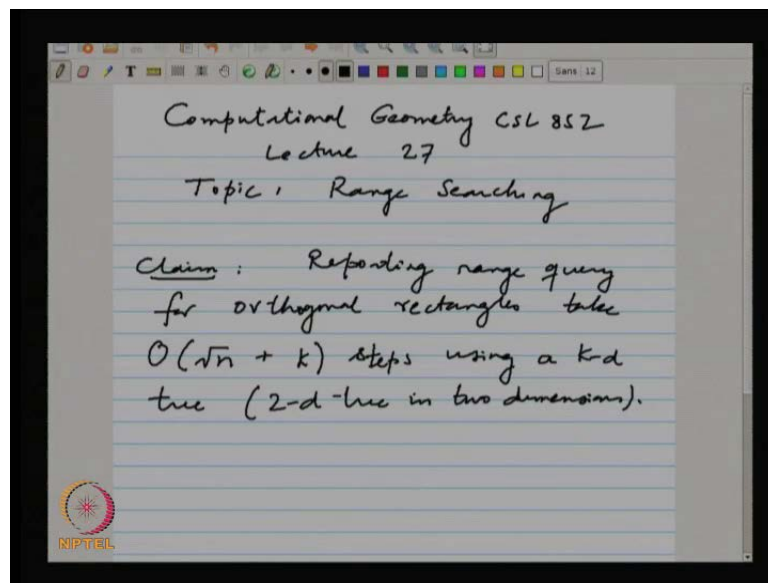 T
Sans 12
Computational Geometry CSL 852
Lecture 27
Topic: Range Searching
Claim: Reporting range query
for orthogonal rectangles take
O(√n + k) steps using a k-d
tree (2-d-tree in two dimensions).
NPTEL